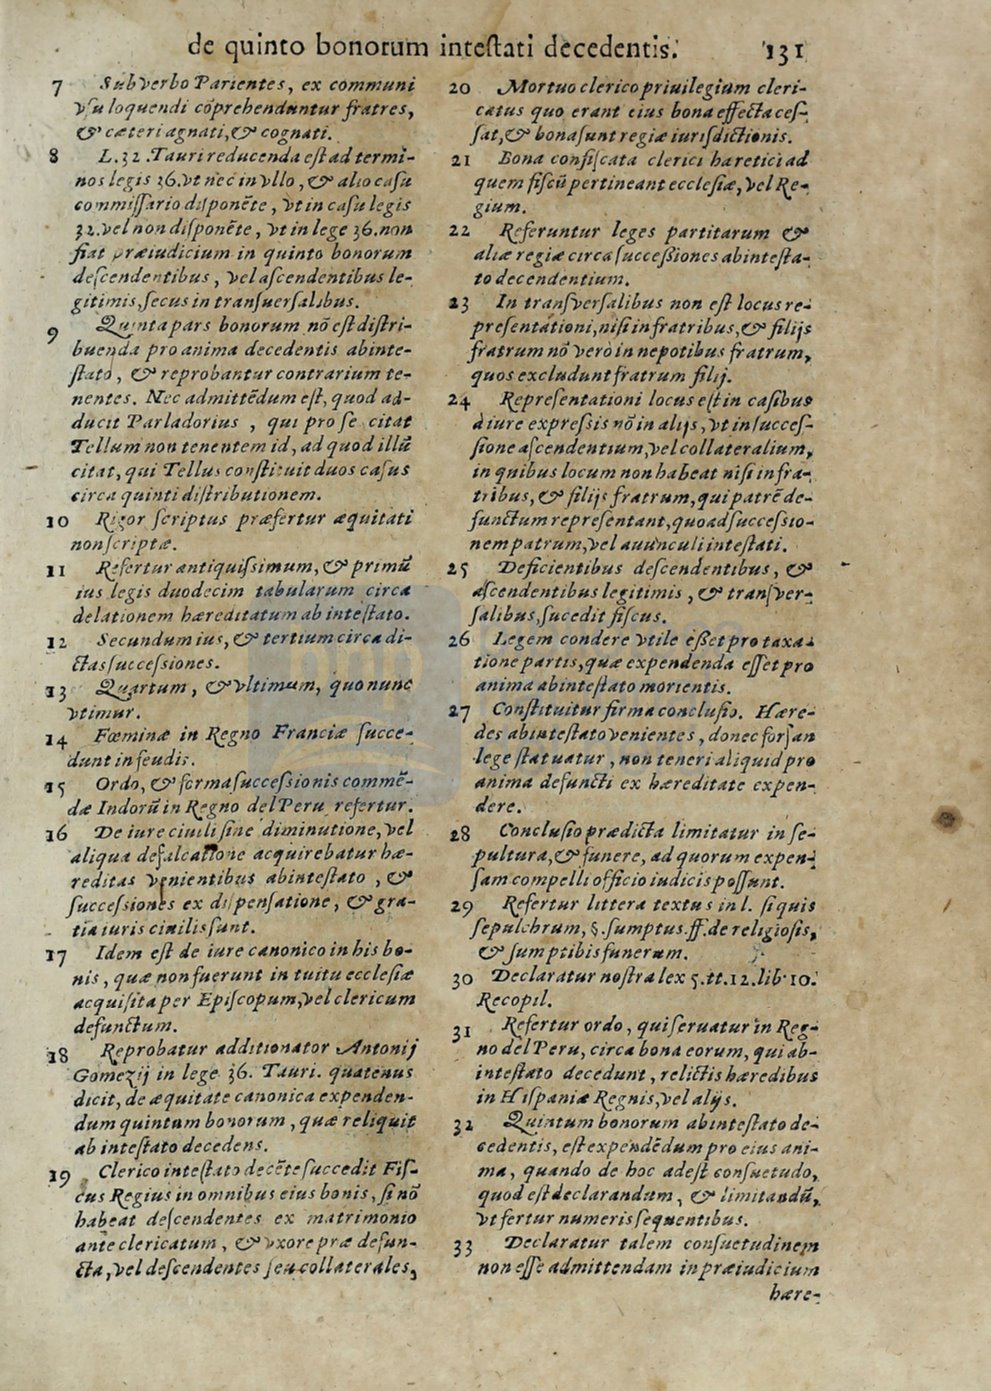 de quinto bonorum inteſtati decedentis. 131
7 Sub verbo Parientes, ex communi
vſu loquendi cõprehenduntur fratres,
& cæteri agnati, & cognati.
8 L. 32. Tauri reducenda eſt ad termi-
nos legis 36. vt nec in vllo, & alio caſu
commiſſario diſponẽte, vt in caſu legis
32. vel non diſponẽte, vt in lege 36. non
fiat præiudicium in quinto bonorum
deſcendentibus, vel aſcendentibus le-
gitimis, ſecus in tranſuerſalibus.
9 Quinta pars bonorum nõ eſt diſtri-
buenda pro anima decedentis abinte-
ſtato, & reprobantur contrarium te-
nentes. Nec admittẽdum eſt, quod ad-
ducit Parladorius, qui pro ſe citat
Tellum non tenentem id, ad quod illũ
citat, qui Tellus conſtituit duos caſus
circa quinti diſtributionem.
10 Rigor ſcriptus præfertur æquitati
non ſcriptæ.
11 Refertur antiquiſsimum, & primũ
ius legis duodecim tabularum circa
delationem hæreditatum ab inteſtato.
12 Secundum ius, & tertium circa di-
ctas ſucceſsiones.
13 Quartum, & vltimum, quo nunc
vtimur.
14 Fœminæ in Regno Franciæ ſucce-
dunt in feudis.
15 Ordo, & forma ſucceſsionis commẽ-
dæ Indorũ in Regno del Peru refertur.
16 De iure ciuili ſine diminutione, vel
aliqua defalcatione acquirebatur hæ-
reditas venientibus abinteſtato, &
ſucceſsiones ex diſpenſatione, & gra-
tia iuris ciuilis ſunt.
17 Idem eſt de iure canonico in his bo-
nis, quæ non fuerunt in tuitu eccleſiæ
acquiſita per Epiſcopum, vel clericum
defunctum.
18 Reprobatur additionator Antonij
Gomezij in lege 36. Tauri. quatenus
dicit, de æquitate canonica expenden-
dum quintum bonorum, quæ reliquit
ab inteſtato decedens.
19 Clerico inteſtato decẽte ſuccedit Fiſ-
cus Regius in omnibus eius bonis, ſi nõ
habeat deſcendentes ex matrimonio
ante clericatum, & vxore præ defun-
cta, vel deſcendentes ſeu collaterales,
20 Mortuo clerico priuilegium cleri-
catus quo erant eius bona effecta ceſ-
ſat, & bona ſunt regiæ iuriſdictionis.
21 Bona confiſcata clerici hæretici ad
quem fiſcũ pertineant eccleſiæ, vel Re-
gium.
22 Referuntur leges partitarum &
aliæ regiæ circa ſucceſsiones abinteſta-
to decedentium.
23 In tranſverſalibus non eſt locus re-
preſentationi, niſi in fratribus, & filijs
fratrum nõ verò in nepotibus fratrum,
quos excludunt fratrum filij.
24 Repreſentationi locus eſt in caſibus
à iure expreſsis nõ in alijs, vt in ſucceſ-
ſione aſcendentium, vel collateralium,
in quibus locum non habeat niſi in fra-
tribus, & filijs fratrum, qui patrẽ de-
functum repreſentant, quoad ſucceſsio-
nem patrum, vel auunculi inteſtati.
25 Deficientibus deſcendentibus, &
aſcendentibus legitimis, & tranſver-
ſalibus, ſucedit fiſcus.
26 Legem condere vtile eßet pro taxa-
tione partis, quæ expendenda eſſet pro
anima abinteſtato morientis.
27 Conſtituitur firma concluſio. Hære-
des abinteſtato venientes, donec forſan
lege ſtatuatur, non teneri aliquid pro
anima defuncti ex hæreditate expen-
dere.
28 Concluſio prædicta limitatur in ſe-
pultura, & funere, ad quorum expen-
ſam compelli officio iudicis poſſunt.
29 Refertur littera textus in l. ſi quis
ſepulchrum, §. ſumptus. ff. de religioſis,
& ſumptibis funerum.
30 Declaratur noſtra lex 5. tt. 12. lib. 10.
Recopil.
31 Refertur ordo, qui ſeruatur in Reg-
no del Peru, circa bona eorum, qui ab-
inteſtato decedunt, relictis hæredibus
in Hiſpaniæ Regnis, vel alijs.
32 Quintum bonorum abinteſtato de-
cedentis, eſt expendẽdum pro eius ani-
ma, quando de hoc adeſt conſuetudo,
quod eſt declarandum, & limitandũ,
vt fertur numeris ſequentibus.
33 Declaratur talem conſuetudinem
non eſſe admittendam in præiudicium
hære-